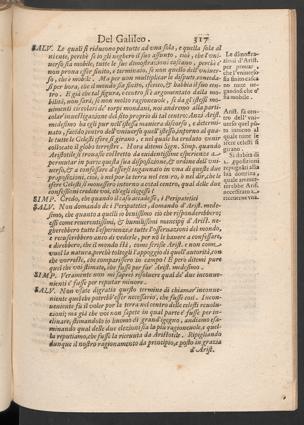 Del Galileo. 317
SALV. Le quali si riducono poi tutte ad una sola, e quella sola al
niente, perchè se io gli neghero il suo assunto, cioè, che l'uni-
verso sia mobile, tutte le sue dimostrazioni cascano, perchè e'
non prova esser finito, e terminato, se non quello dell'univer-
so, che è mobile. Ma per non multiplicar le dispute conceda-
si per hora, che il mondo sia finito, sferico, & habbia il suo cen-
tro. E già che tal figura, e centro si è argomentato dalla mo-
bilità, non sarà, se non molto ragionevole, se da gli stessi mo-
vimenti circolari de' corpi mondani, noi andremo alla parti-
colar investigazione del sito proprio di tal centro: Anzi Arist.
medesimo ha egli pur nell'istessa maniera discorso, e determi-
nato, facendo centro dell'universo quell'istesso, intorno al qua-
le tutte le Celesti sfere si girano, e nel quale ha creduto venir
collocato il globo terrestre. Hora ditemi Sign. Simp. quando
Aristotile si trovasse costretto da evidentissime esperienze a
permutar in parte questa sua disposizione, & ordine dell'uni-
verso, & a confessare d'essersi ingannato in una di queste due
proposizioni, cioè, o nel por la terra nel centro, o nel dir, che le
sfere Celesti si movessero intorno a cotal centro, qual delle due
confessioni credete voi, ch'egli eleggesse?
SIMP. Credo, che quando il caso accadesse, i Peripatetici
SALV. Non domando de i Peripatetici, domando d'Arist. mede-
simo, che quanto a quelli so benissimo ciò che risponderebbero;
essi come reverentissimi, & humilissimi mancipii d'Arist. ne-
gherebbero tutte l'esperienze, e tutte l'osservazioni del mondo,
e recuserebbero anco di vederle, per nò le havere a confessare,
e direbbero, che il mondo stà, come scrisse Arist. e non come
vuol la natura, perchè toltogli l'appoggio di quell'autorità, con
che vorreste, che comparissero in campo? E però ditemi pure
quel che voi stimate, che fusse per far Arist. medesimo.
SIMP. Veramente non mi saprei risolvere qual de' due inconve-
nienti e' fusse per reputar minore.
SALV. Non usate di grazia questo termine di chiamar inconvenie-
niente quel che potrebb'esser necessario, che fusse così. Inconve-
niente fu il voler por la terra nel centro delle celesti revolu-
zioni; ma già che voi non sapete in qual parte e' fusse per in-
clinare, stimandolo io huomo di grand'ingegno, andiamo esa-
minando qual delle due elezioni sia la più ragionevole, e quel-
la reputiamo, che fusse la ricevuta da Aristotile. Ripigliando
dunque il nostro ragionamento da principio, e posto in grazia
d'Arist.
Le dimostra-
zioni d'Arist.
per provar,
che l'univer-
so sia finito casca-
no tutte ne-
gandosi che e'
sia mobile.
Arist. fa cen-
tro dell'uni-
verso quel pū-
to intorno al
quale tutte le
sfere celesti si
girano.